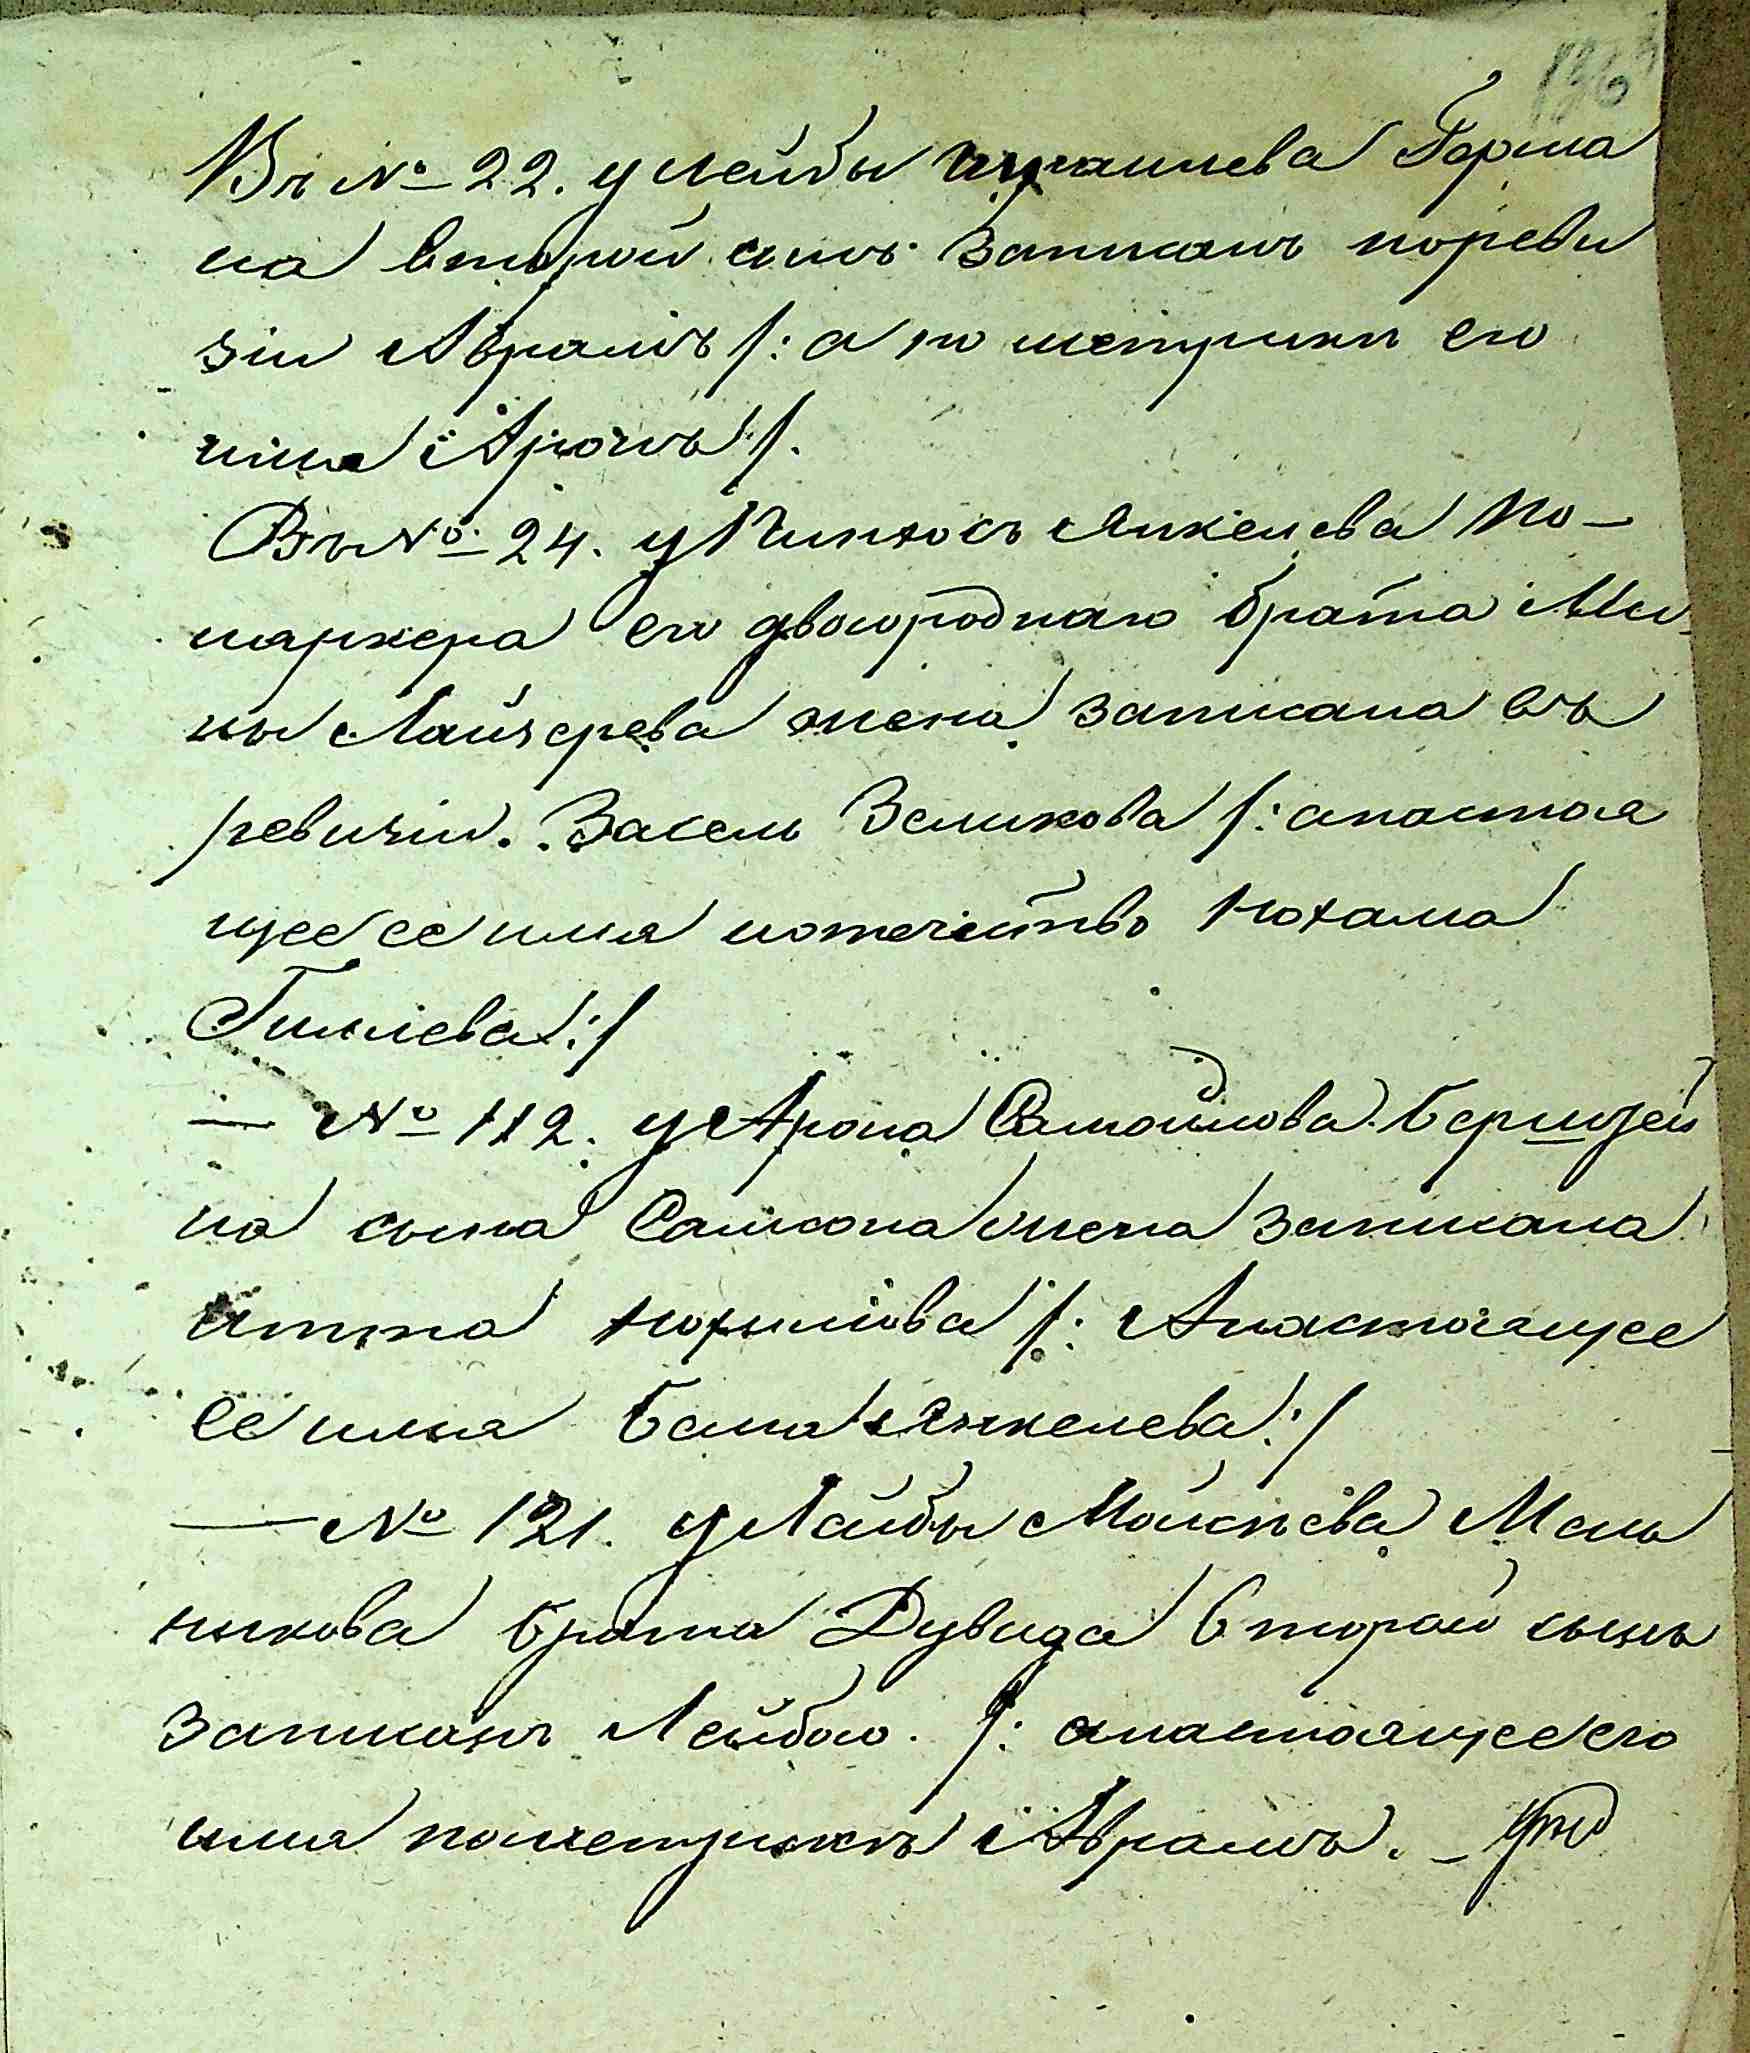 Въ № 22. у Лейбы Израилева Герма
на второй сынъ записанъ пореви
зіи Абрамъ /: а по метрики его
имя Аронъ :/.
Въ № 24. у Пинхосъ Янкелева По-
маркера его двоюроднаго брата Ми
ны Лайзерева жена записана въ
ревизіи. Закель Зеликова /: анастоя
щее ее имя иотечество Нохама
Гилиева :/
— № 112. у Арона Самойлова Берштей
на сына Самсона жена записана
Итта Нохимова /: Анастоящее
ее имя Бася Янкелева :/
— № 121. у Лейбы Мойсѣева Мель
никова брата Дувида второй сынъ
записанъ Лейбою. /: анастоящее его
имя пометрикѣ Абрамъ. —